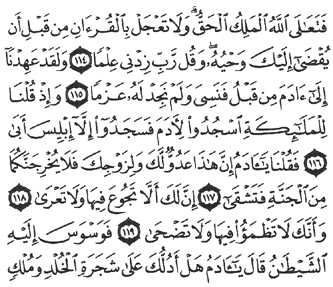 فَتَعَٰلَى ٱللَّهُ ٱلْمَلِكُ ٱلْحَقُّ ۗ وَلَا تَعْجَلْ بِٱلْقُرْءَانِ مِن قَبْلِ أَن
يُقْضَىٰٓ إِلَيْكَ وَحْيُهُۥ ۖ وَقُل رَّبِّ زِدْنِى عِلْمًا ١١٤ وَلَقَدْ عَهِدْنَآ
إِلَىٰٓ ءَادَمَ مِن قَبْلُ فَنَسِىَ وَلَمْ نَجِدْ لَهُۥ عَزْمًا ١١٥ وَإِذْ قُلْنَا
لِلْمَلَٰٓئِكَةِ ٱسْجُدُوا۟ لِءَادَمَ فَسَجَدُوٓا۟ إِلَّآ إِبْلِيسَ أَبَىٰ
١١٦ فَقُلْنَا يَٰٓـَٔادَمُ إِنَّ هَٰذَا عَدُوٌّ لَّكَ وَلِزَوْجِكَ فَلَا يُخْرِجَنَّكُمَا
مِنَ ٱلْجَنَّةِ فَتَشْقَىٰٓ ١١٧ إِنَّ لَكَ أَلَّا تَجُوعَ فِيهَا وَلَا تَعْرَىٰ ١١٨
وَأَنَّكَ لَا تَظْمَؤُا۟ فِيهَا وَلَا تَضْحَىٰ ١١٩ فَوَسْوَسَ إِلَيْهِ
ٱلشَّيْطَٰنُ قَالَ يَٰٓـَٔادَمُ هَلْ أَدُلُّكَ عَلَىٰ شَجَرَةِ ٱلْخُلْدِ وَمُلْكٍ